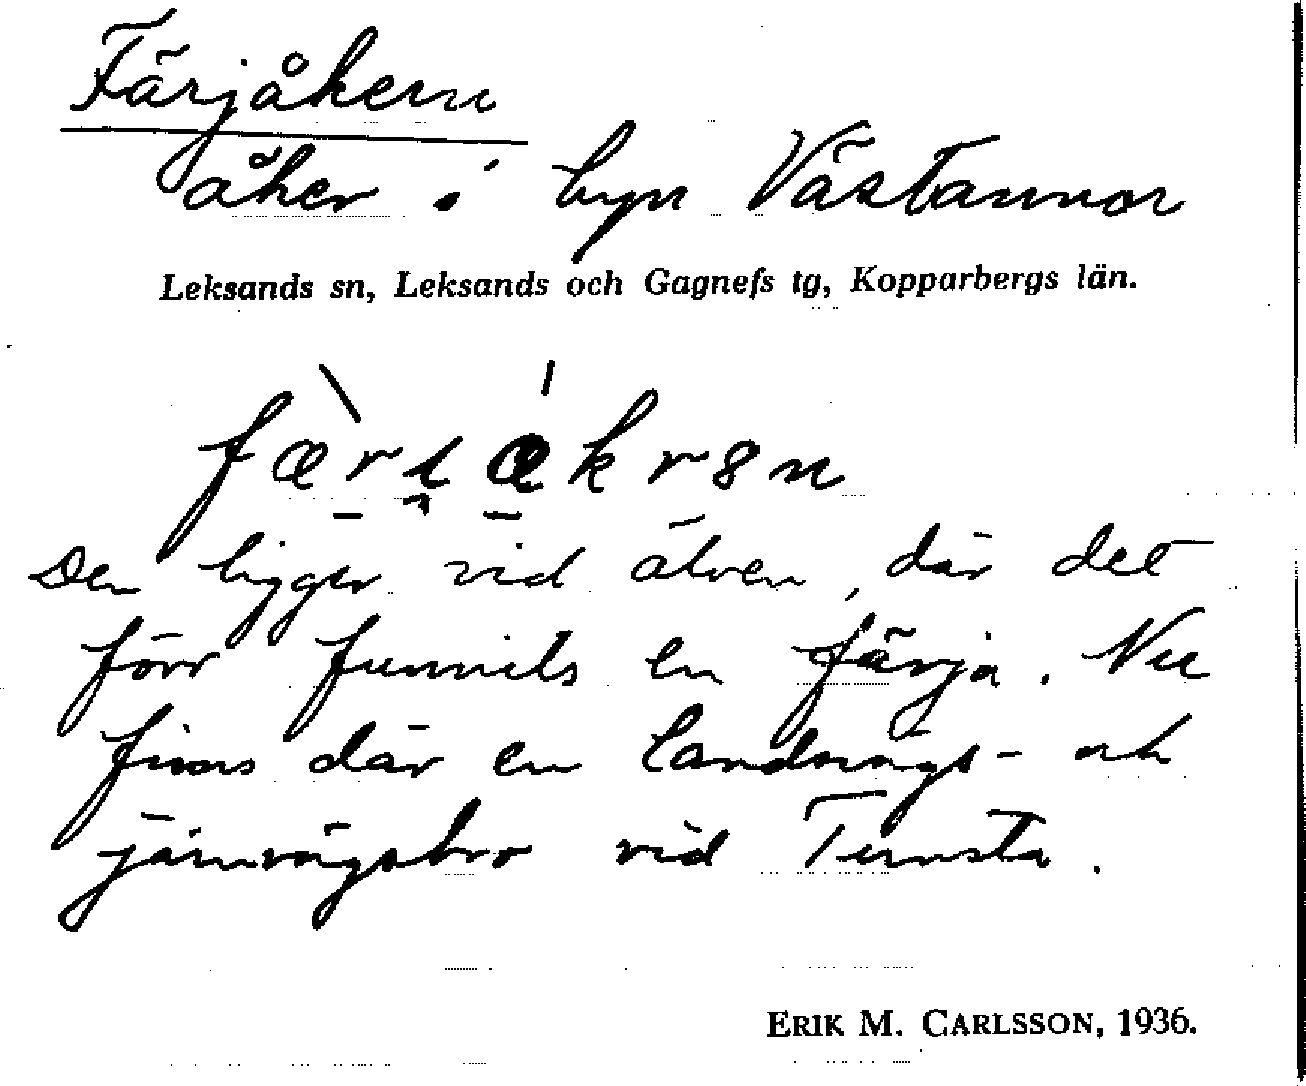 Färjåkern
åker i byn Västannor
Leksands sn, Leksands och Gagnefs tg, Kopparbergs län.
Den ligger vid älven, där det
förr funnits en färja. Nu
finns där en landsvägs- och
järnvägsbro vid Tunsta.
ERIK M. CARLSSON, 1936.